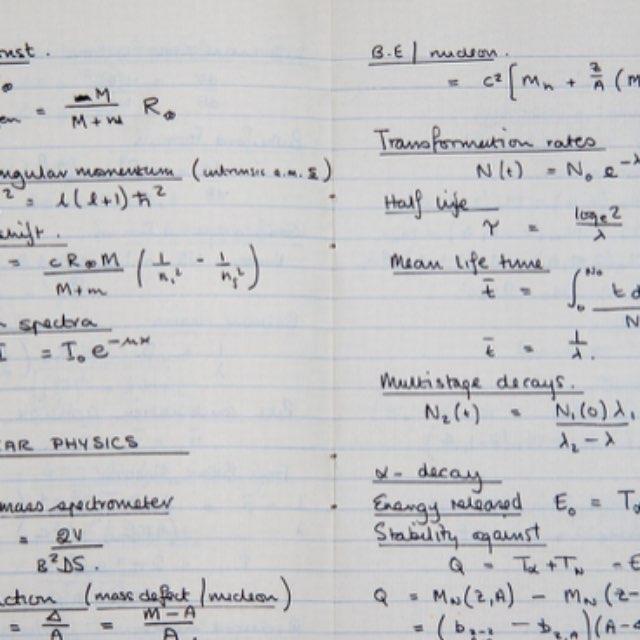 nst.
= M/(M+m) R∞
ngular momentum (intrinsic a.m. s)
² = l(l+1)ħ²
shift.
= cR∞M/(M+m) (1/n₁² - 1/n₂²)
spectra
I = I₀e^-μx
EAR PHYSICS
mass spectrometer
= 2V/B²DS.
action (mass defect/nucleon)
= Δ/A = M-A/A.
B.E/nucleon.
= c²[Mn + Z/A (M
Transformation rates
N(t) = N₀ e^-λ
Half life
τ = loge2/λ
Mean life time
t̄ = ∫₀^N₀ t d / N
t̄ = 1/λ.
Multistage decays.
N₂(t) = N₁(0) λ₁ / λ₂ - λ
α - decay
Energy released E₀ = Tα
Stability against
Q = Tα + TN = E
Q = MN(Z,A) - MN(Z-
= (bZ-2 - bZ,A)(A-